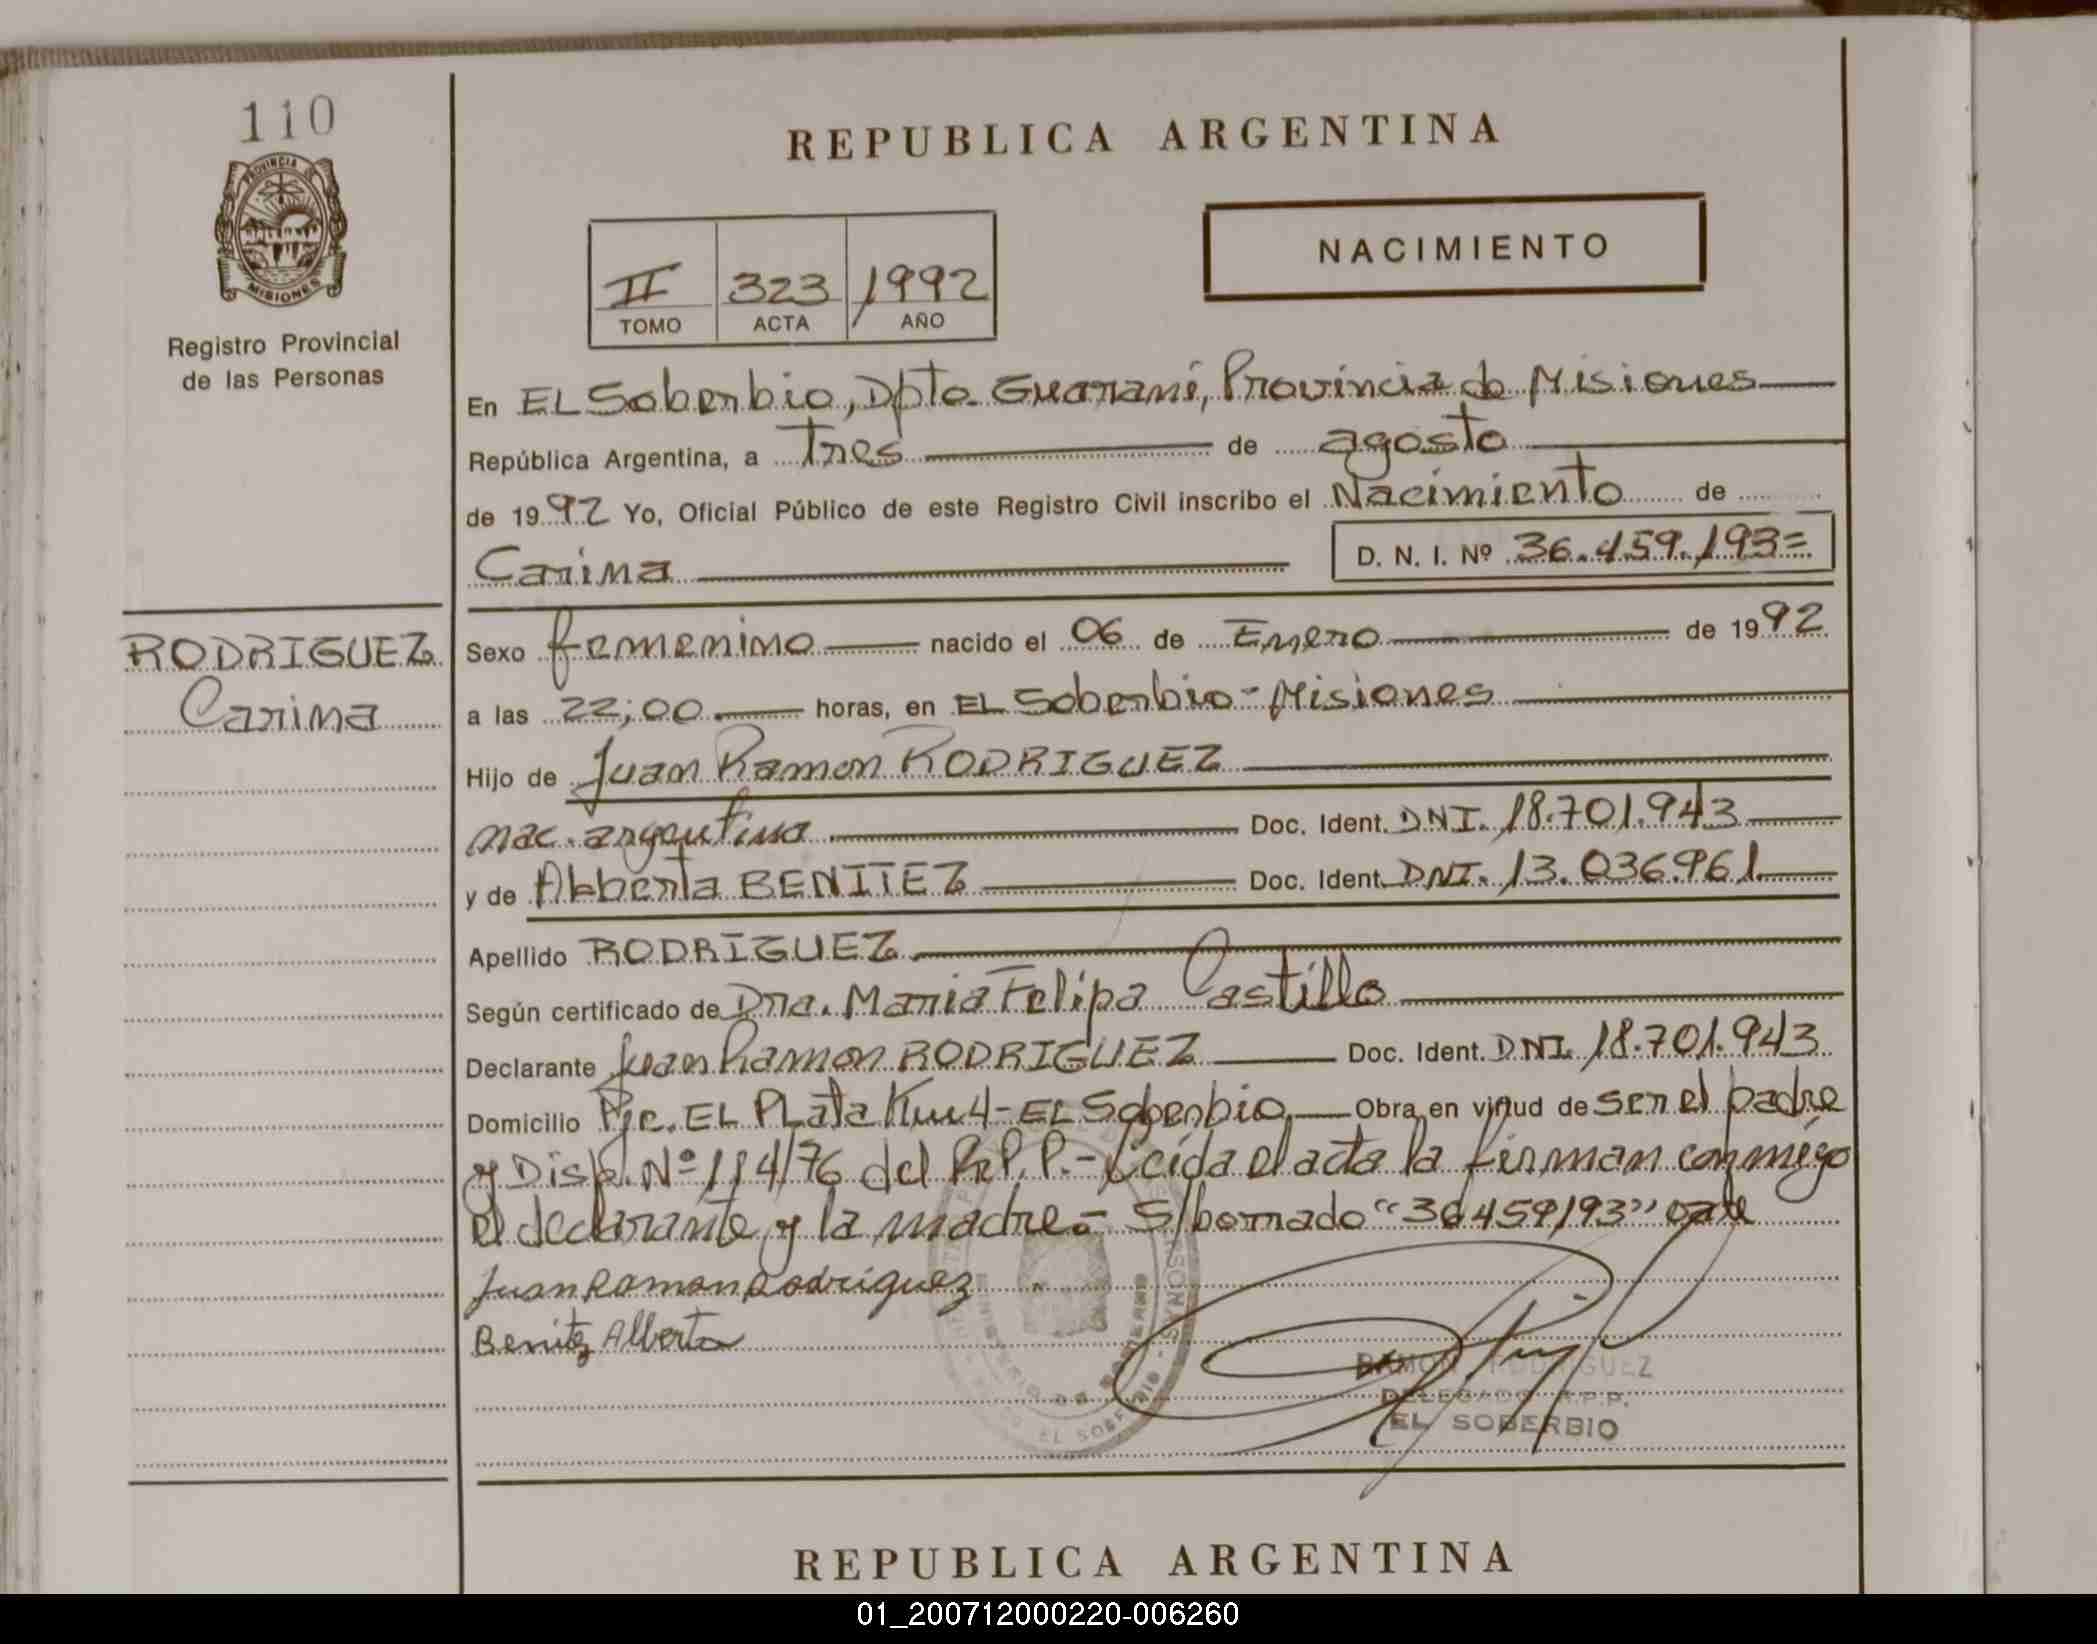 110
REPUBLICA ARGENTINA
PROVINCIA DE
MISIONES
NACIMIENTO
II 323 1992
TOMO ACTA AÑO
Registro Provincial
de las Personas
En EL Soberbio, Dpto. Guaraní, Provincia de Misiones
República Argentina, a Tres de agosto
de 1992 Yo, Oficial Público de este Registro Civil inscribo el Nacimiento de
Carina D. N. I. Nº 36.459.193=
RODRIGUEZ
Carina
Sexo femenino nacido el 06 de Enero de 1992
a las 22;00 horas, en EL Soberbio - Misiones
Hijo de Juan Ramon RODRIGUEZ
nac. argentina Doc. Ident. DNI. 18.701.943
y de Alberta BENITEZ Doc. Ident. DNI. 13.036.961
Apellido RODRIGUEZ
Según certificado de Dra. Maria Felipa Castillo
Declarante Juan Ramon RODRIGUEZ Doc. Ident. DNI. 18.701.943
Domicilio Pje. EL PLata Km 4 - EL Soberbio Obra en virtud de ser el padre
y Disp. Nº 114/76 del R.P.P.- Leída el acta la firman conmigo
el declarante y la madre.- S/borrado "36459193" vale
Juan Ramon Rodriguez
Benitez Alberta
RAMON RODRIGUEZ
DELEGADO R.P.P.
EL SOBERBIO
EL SOBERBIO
REPUBLICA ARGENTINA
01_200712000220-006260